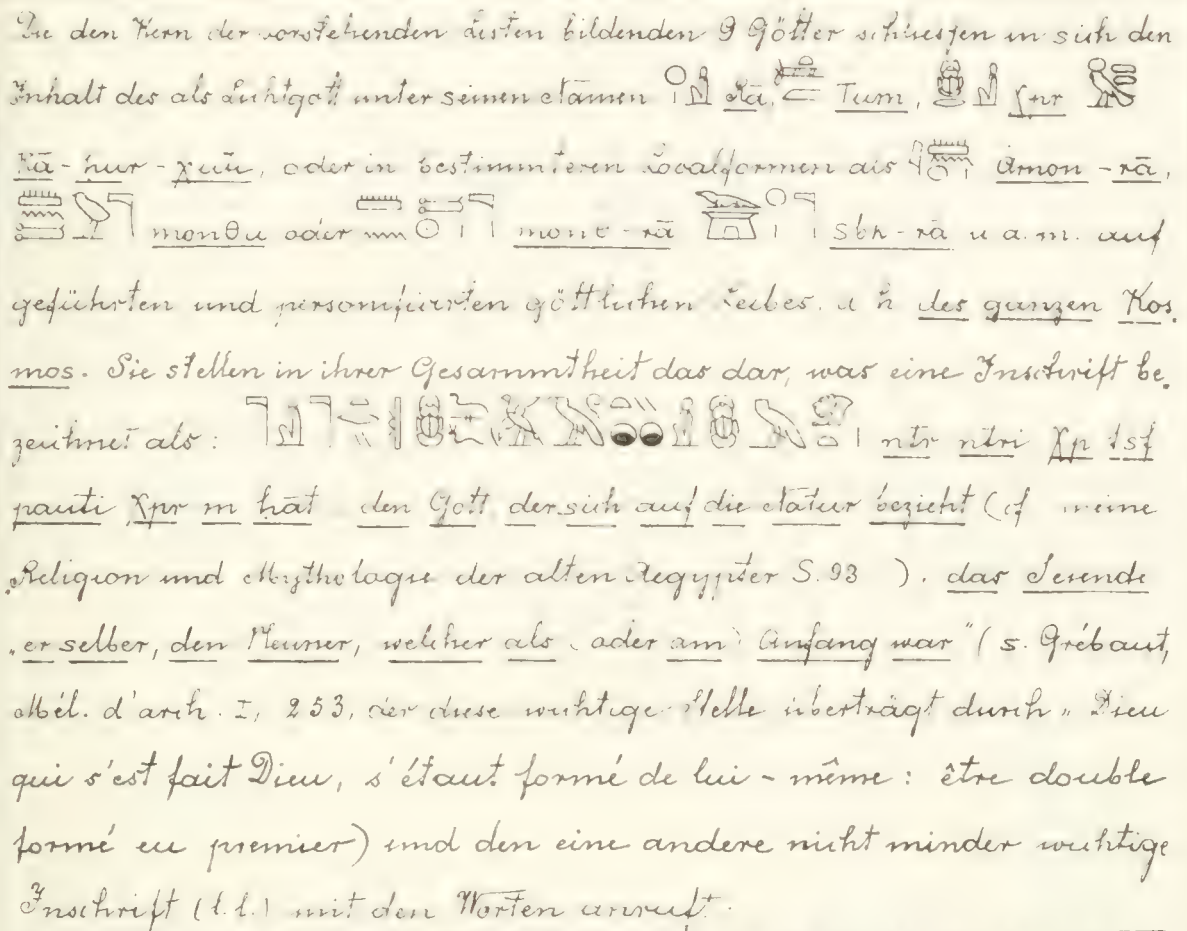 Die den Kern der vorstehenden Listen bildenden 9 Götter schliessen in sich den
Inhalt des als Lichtgott unter seinen Namen Rā, Tum, χpr
Rā-hur-χuti, oder in bestimmteren Localformen als Amon-rā,
monθu oder mont-rā sbk-rā u a. m. auf
geführten und personificirten göttlichen Leibes, d h des ganzen Kos-
mos. Sie stellen in ihrer Gesammtheit das dar, was eine Inschrift be-
zeichnet als: ntr ntri χp tsf
pauti χpr m hāt den Gott der sich auf die Natur bezieht (cf meine
Religion und Mythologie der alten Aegypter S. 93 ). das
„er selber, den Neuner, welcher als (oder am) Anfang war" (s. Grébaut,
Mél. d'arch. I, 253, der diese wichtige Stelle überträgt durch „Dieu
qui s'est fait Dieu, s'étaut formé de lui-même: être double
formé eu premier) und den eine andere nicht minder wichtige
Inschrift (l. l.) mit den Worten anruft: